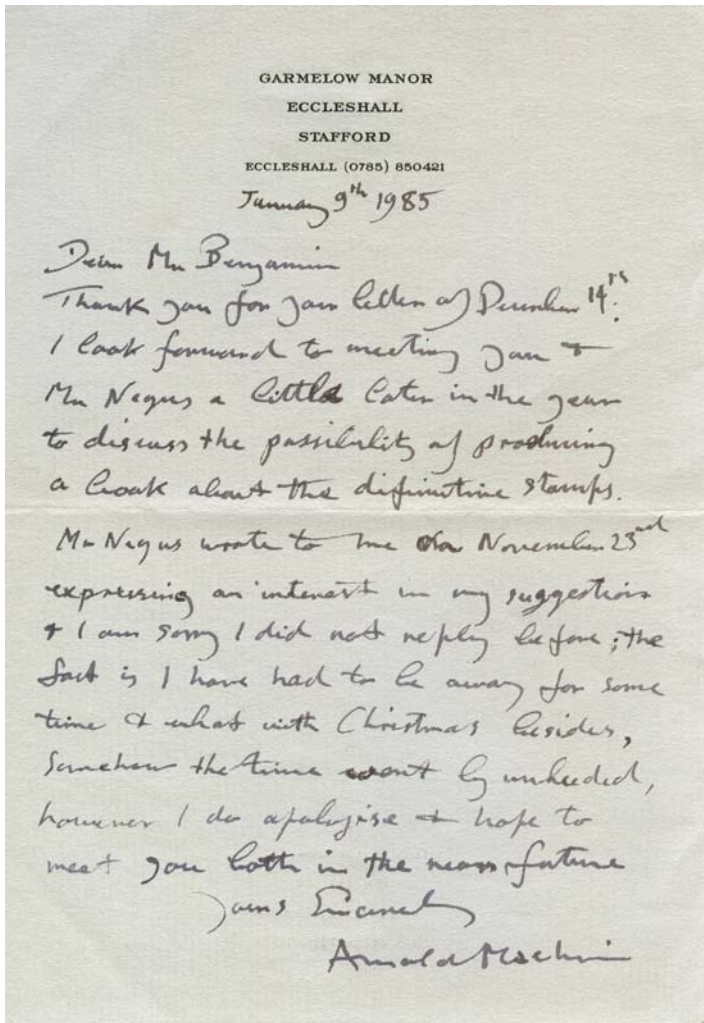 GARMELOW MANOR
ECCLESHALL
STAFFORD
ECCLESHALL (0785) 850421
January 9th 1985
Dear Mr Benjamin
Thank you for your letter of December 14th.
I look forward to meeting you &
Mr Negus a little later in the year
to discuss the possibility of producing
a book about the definitive stamps.
Mr Negus wrote to me on November 23rd
expressing an interest in my suggestion
& I am sorry I did not reply before; the
fact is I have had to be away for some
time & what with Christmas besides,
somehow the time went by unheeded,
however I do apologise & hope to
meet you both in the near future
Yours Sincerely
Arnold Machin